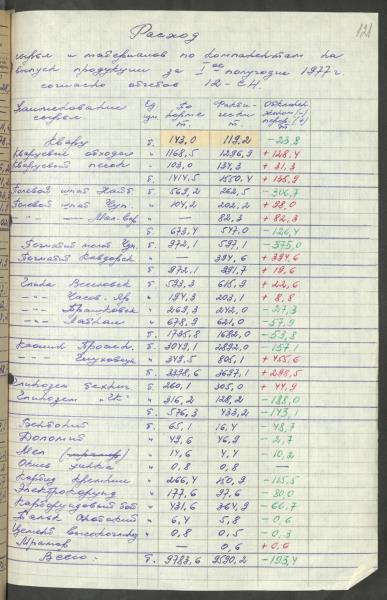 121
Расход
сырья и материалов по компонентам на
выпуск продукции за I ое полугодие 1977 г.
согласно отчетов 12-СН.
Наименование сырья. Ед. изм. По норме т. Факти- чески т. Отклонен. эконом (-) перер. (+)
Кварц т. 143,0 119,2 -23,8
Кварцевые отходы " 1168,5 1296,9 + 128,4
Кварцевый песок " 103,0 134,3 + 31,3
т. 1414,5 1550,4 + 135,9
Полевой шпат т. 569,2 262,5 -306,7
Полевой шпат Чуп. " 104,2 202,2 + 98,0
" — 82,3 + 82,3
т. 673,4 547,0 -126,4
Пегматит Чуп. т. 972,1 597,1 -375,0
Пегматит " — 394,6 + 394,6
т. 972,1 991,7 + 19,6
Глина Веселовск т. 593,3 615,9 + 22,6
-"- Часов-Яр " 194,3 203,1 + 8,8
-"- " 269,3 242,0 -27,3
-"- " 678,9 621,0 -57,9
т. 1735,8 1682,0 -53,8
Каолин Просян. т. 3049,1 2892,0 -157,1
Каолин Глуховецк " 349,5 805,1 + 455,6
т. 3398,6 3697,1 + 298,5
Глинозем технич. т. 260,1 305,0 + 44,9
Глинозем " 316,2 128,2 -188,0
т. 576,3 433,2 -143,1
Бентонит т. 65,1 16,4 -48,7
Доломит " 49,6 46,9 -2,7
Мел " 14,6 4,4 -10,2
Окись цинка " 0,8 0,8 —
Карбид кремния " 266,4 150,9 -115,5
Электрокорунд " 177,6 97,6 -80,0
Карборундовый " 431,6 364,9 -66,7
Тальк " 6,4 5,8 -0,6
Цемент " 0,8 0,5 -0,3
Мрамор — 0,6 + 0,6
Всего. т. 9783,6 9590,2 -193,4